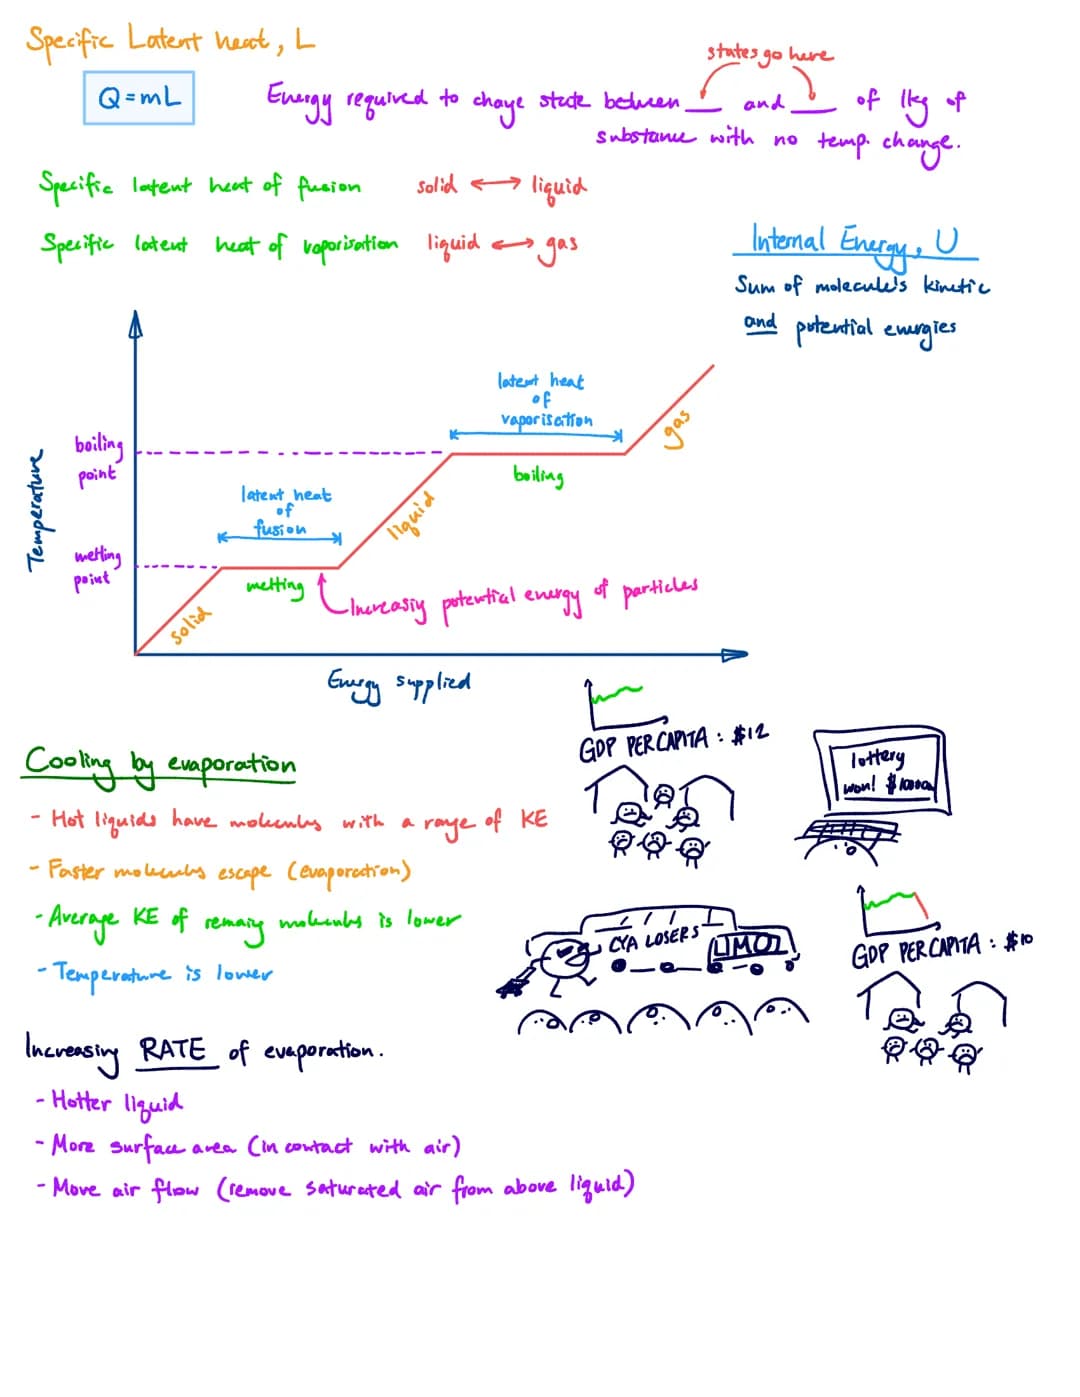 Specific Latent heat, L
states go here
Q = mL
Energy required to change state between ___ and ___ of 1kg of
substance with no temp. change.
Specific latent heat of fusion solid ⟷ liquid
Specific latent heat of vaporisation liquid ⟷ gas
Internal Energy, U
Sum of molecule's kinetic
and potential energies
latent heat
of
vaporisation
gas
boiling
point
boiling
Temperature
latent heat
of
fusion
liquid
melting
point
melting
Increasing potential energy of particles
solid
Energy supplied
Cooling by evaporation
- Hot liquids have molecules with a range of KE
- Faster molecules escape (evaporation)
- Average KE of remaining molecules is lower
- Temperature is lower
GDP PER CAPITA : $12
lottery
won!
CYA LOSERS
LIMO
GDP PER CAPITA : $10
Increasing RATE of evaporation.
- Hotter liquid
- More surface area (in contact with air)
- Move air flow (remove saturated air from above liquid)